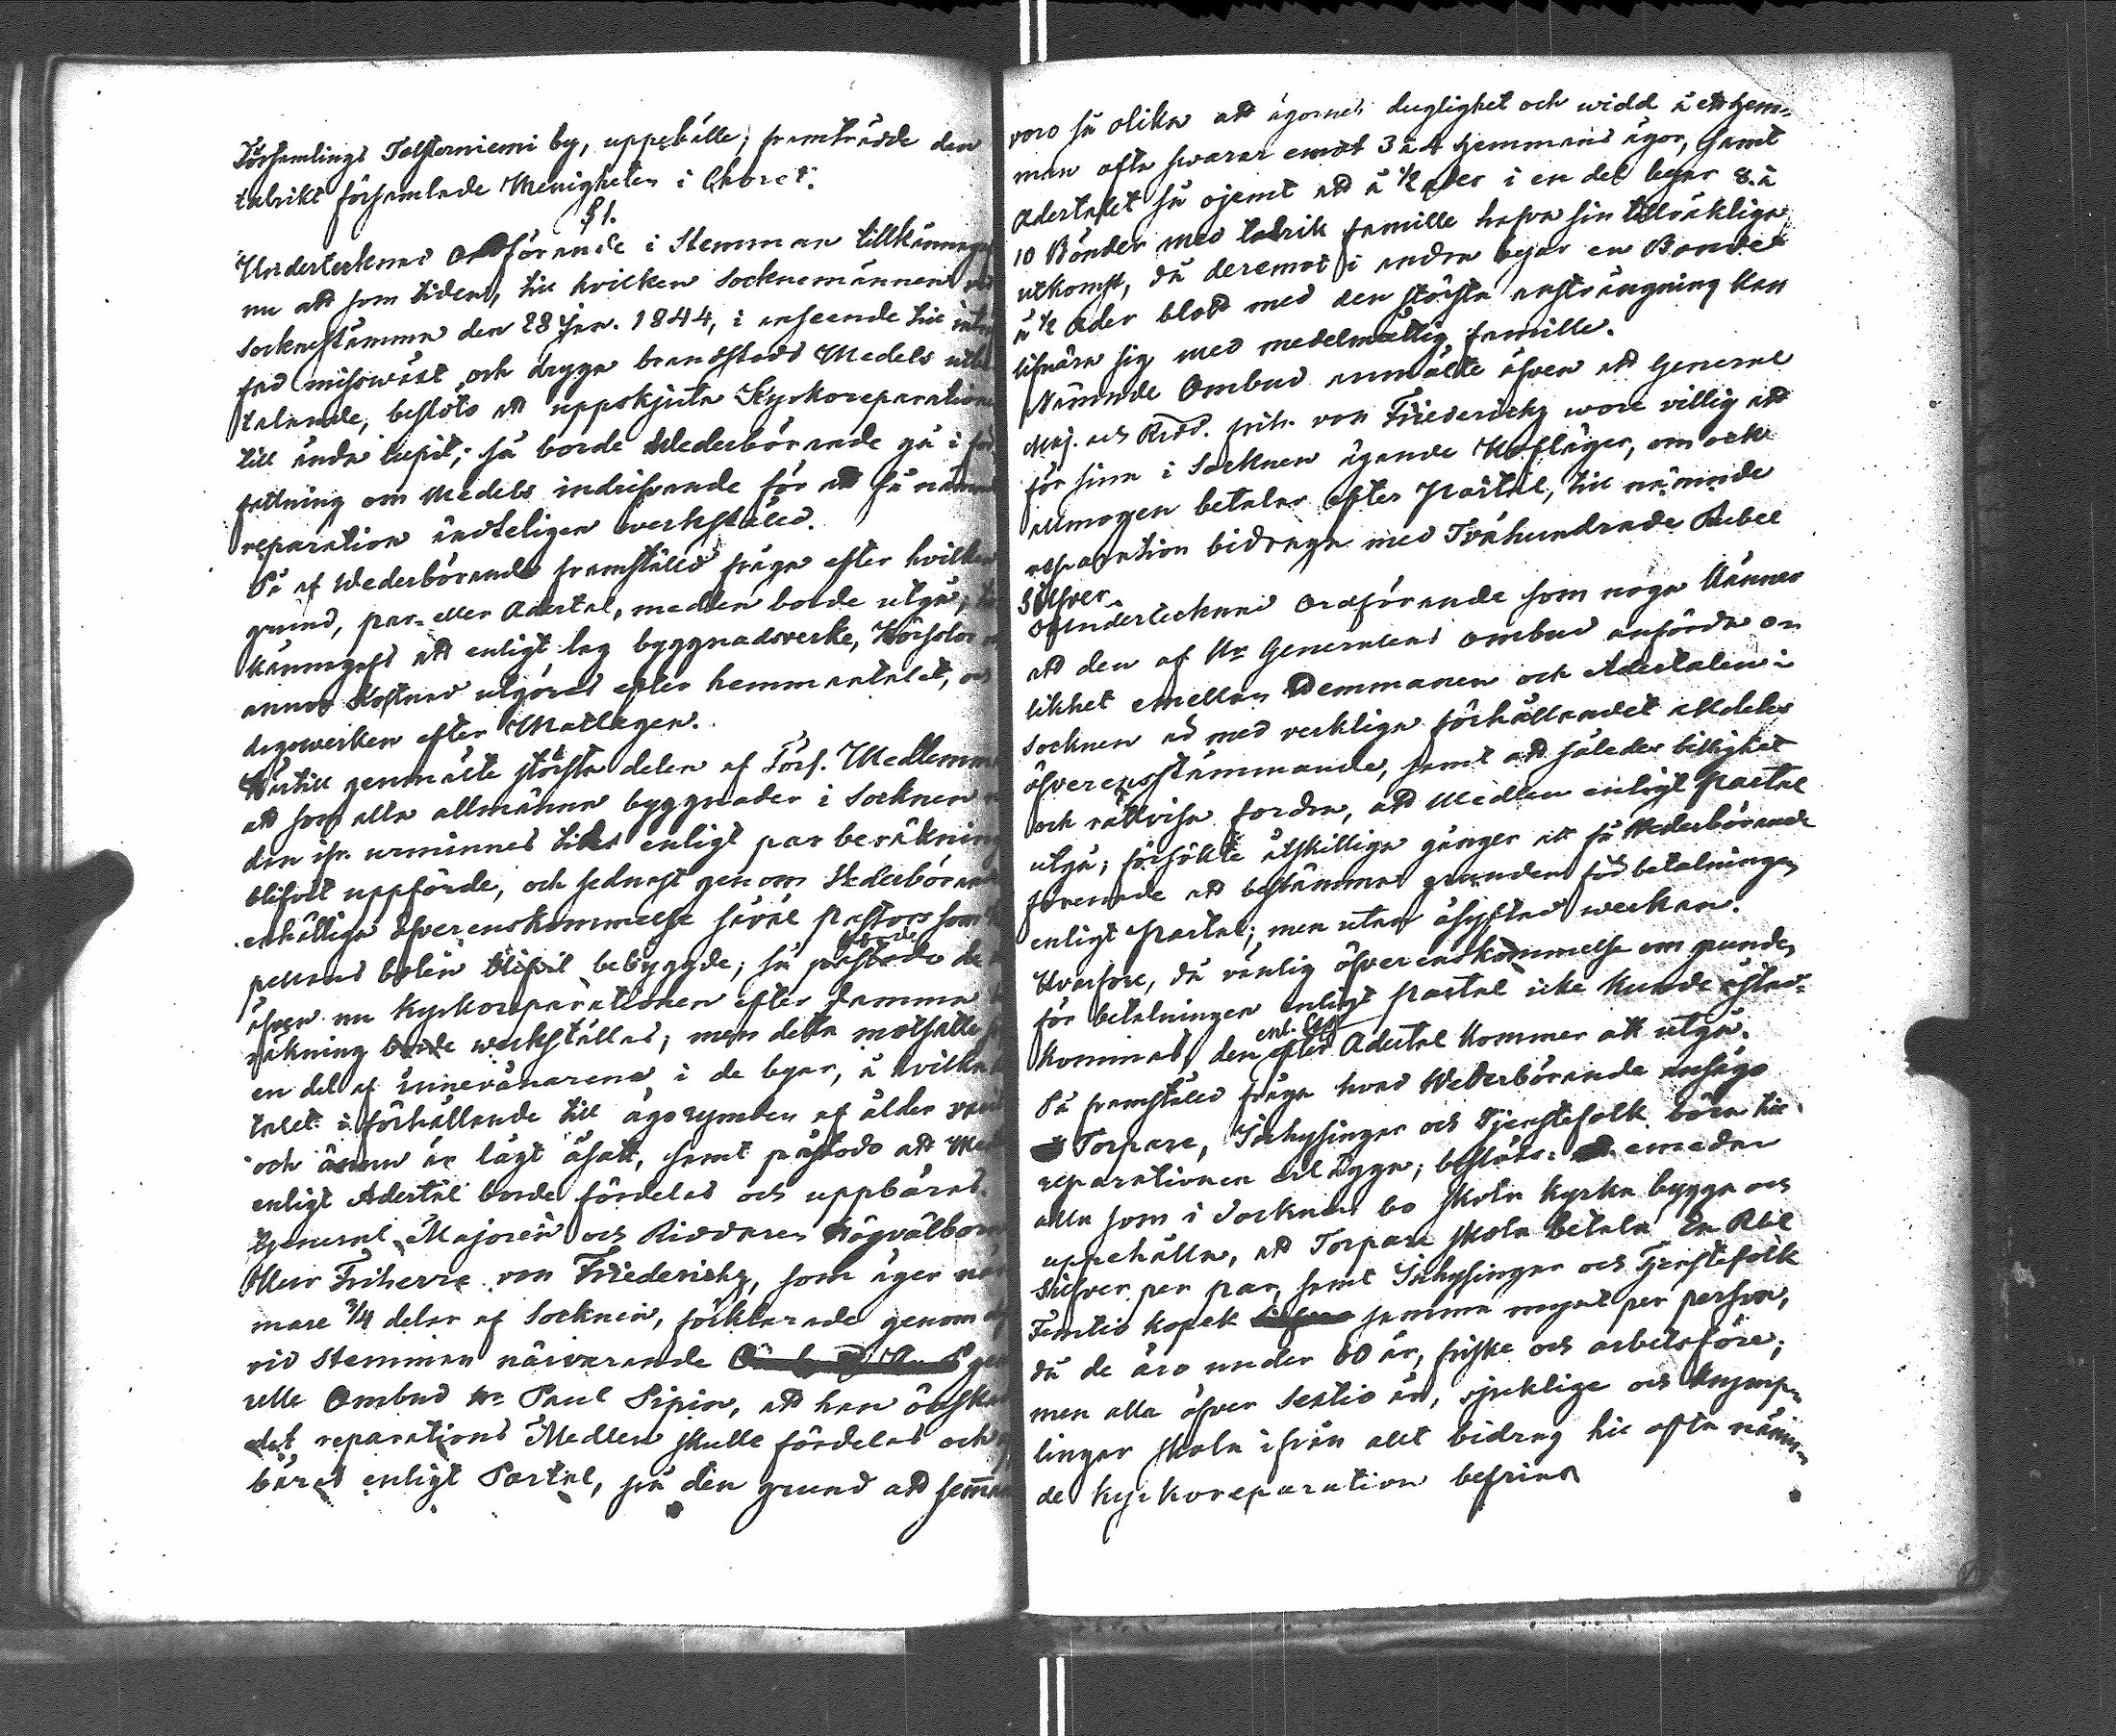 Församlings Tolsterniemi by, uppehålle; framträdde den
talrikt församlade Menigheten i Choret.
§ 1.
Undertecknad Ordförande i Stemman tillkännagaf
nu att som tiden, till hvilken Socknemännen vid
Socknestämma den 28 Jan. 1844, i anseende till
misswäxt och dryga brandstods Medels
talande, beslöts att uppskjuta Kyrkoreparation
till ända lupit; så borde Wederbörande gå i för
fattning om Medels indrifvande för att få nämnde
reparation ändteligen werkstäld.
På af Wederbörande framställd fråga efter hvilken
grund, par- eller Adertal, medlen borde utgå,
kännagafs att enligt lag byggnadsverke, Körslor
annan Kostnad utgöres efter hemmantalet, och
dagswerken efter Matlagen.
Härtill genmälte största delen af Förs. Medlemmar
att som alla allmänna byggnader i Socknen
den ifr. urminnes tider enligt par beräkning
blifvit uppförde, och sednast genom Wederbörandes
enhälliga öfverenskommelse såväl Pastors som
pellans bolen blifvit bebyggde; så påstodo de
äfven nu Kyrkoreparationen efter samma
räkning borde werkställas; men detta motsatte
en del af innevånarena i de byar, i hvilka
talet i förhållande till ägorymden af ålder varit
och ännu är lågt åsatt, samt påstodo att Med
enligt Adertal borde fördelas och uppbäras.
General-Majoren och Riddaren Högvälborne
Herr Friherre von Friedericks, som äger när
mare 3/4 delar af Socknen, förklarade genom
vid Stemman närvarande
relle Ombud Hr Paul Pipin, att han önskade
det reparations Medlen skulle fördelas och
bäras enligt Partal, på den grund att hemman
voro så olika att ägornes duglighet och widd å ett Hem-
man ofta swarar emot 3 à 4 Hemmans ägor, samt
Adertalet så ojemt att å 1/2 ader i en del byar 8 à
10 Bönder med talrik famille hafva sin tillräckliga
utkomst, då deremot i andra byar en Bonde
å 1/2 Ader blott med den största ansträngning kan
lifnära sig med medelmåttig famille.
Nämnde Ombud anmälte äfven att General
Maj. och Ridd. frih. von Friedericks wore villig att
för sina i Socknen ägande Hofläger, om ock
allmogen betalar efter Partal, till nämnde
reparation bidraga med Tvåhundrade Rubel
Silfver.
Undertecknad Ordförande som noga känner
att den af Hr Generalens Ombud anförda o
likhet emellan Hemmanen och Adertalen i
Socknen är med verkliga förhållandet alldeles
öfverensstämmande, samt att således billighet
och rättvisa fordra, att Medlen enligt Partal
utgå; försökte åtskilliga gånger att få Wederbörande
förenade att bestämma grunden för betalningen
enligt Partal; men utan åsyftad werkan.
Hvarföre, då vänlig öfverenskommelse om grunden
för betalningen enligt Partal icke kunde åstad-
kommas, den enl. lag efter Adertal kommer att utgå.
På framställd fråga hvad Wederbörande ansågo
Torpare, Inhysingar och Tjenstefolk böra till
reparationen erlägga; beslöts: emedan
alla som i Socknen bo skola Kyrka bygga och
uppehålla, att Torpare skola betala En Rbl
Silfver per par, samt Inhysingar och Tjenstefolk
Femtio kopek samma mynt per person,
då de äro under 60 år, friske och arbetsföre;
men alla öfver Sextio år, sjuklige och krymp-
lingar skola ifrån allt bidrag till ofta nämn-
de kyrkoreparation befrias